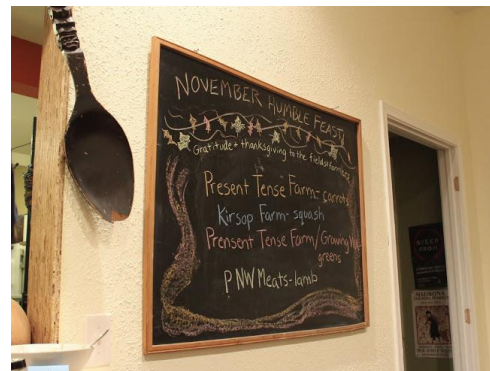 NOVEMBER HUMBLE FEAST!
Gratitude + thanksgiving to the fields + farmers
Present Tense Farm- carrots
Kirsop Farm- squash
Prensent Tense Farm/Growing
greens
PNW Meats-lamb